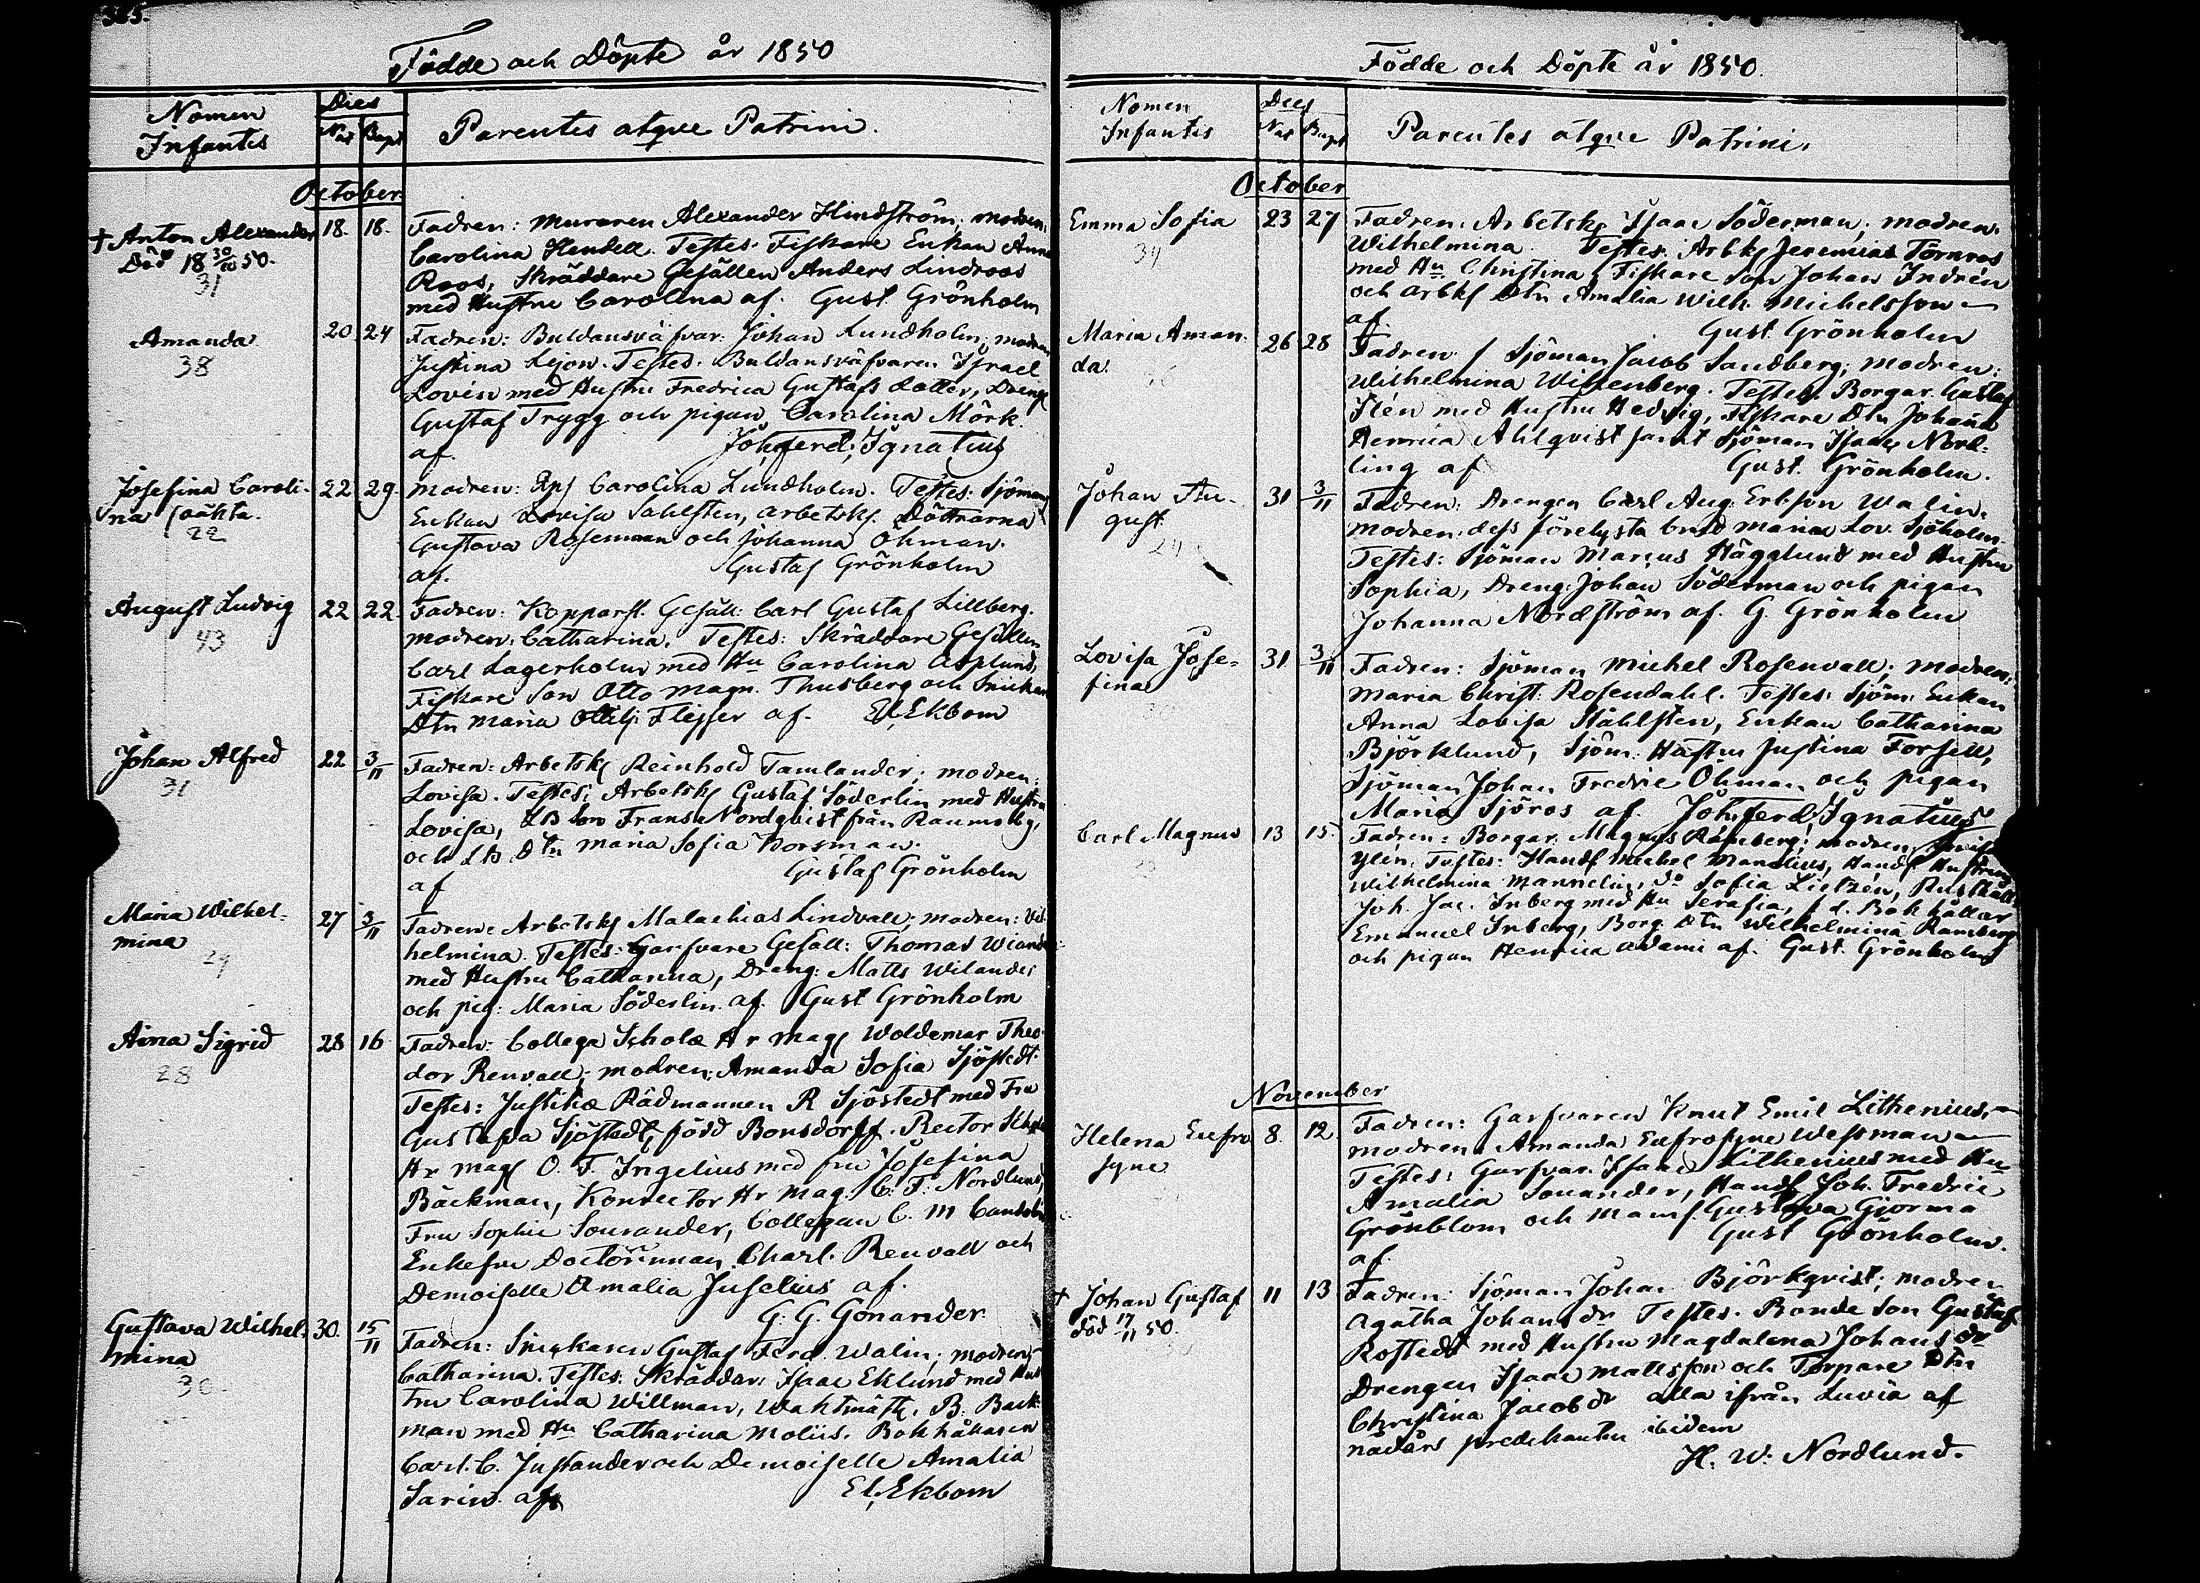 Födde och Döpte år 1850
Nomen Infantis
Dies
Nat Bapt
Parentes atqve Patrini.
October
† Anton Alexander
Död 18 30/10 50.
31
18 18.
Fadren: Muraren Alexander Hindström; modren:
Carolina Hendell. Testes: Fiskare Enkan Anna
Roos, Skräddare Gesällen Anders Lindroos
med Hustru Carolina af. Gust. Grönholm
Amanda
38
20 24
Fadren: Buldansväfvar. Johan Lundholm; modren
Justina Lejon. Testes: Buldansväfvaren Israel
Lovén med Hustru Fredrica Gustafs dotter, Dreng.
Gustaf Trygg och pigan Carolina Mörk.
af. Joh. Ferd. Ignatius
Josefina Caroli-
na oäkta.
22
22 29.
modren: Carolina Lundholm. Testes: Sjömans
Enkan Lovisa Sahlsten, arbetsk. Döttrarna
Gustava Rosemaan och Johanna Öhman.
af. Gustaf Grönholm
August Ludvig
43
22 22.
Fadren: Kopparsl. Gesäll: Carl Gustaf Lillberg.
modren: Catharina. Testes: Skräddare Gesällen
Carl Lagerholm med Hu Carolina Asplund,
Fiskare Son Otto Magn. Thusberg och Snickare
Dtn Maria Ottilj: Flesser af. El. Ekbom
Johan Alfred
31
22 3/11
Fadren: Arbetsk Reinhold Tamlander; modren:
Lovisa. Testes: Arbetsk Gustaf Söderlin med Hustru
Lovisa, LB Son Frans Nordqvist från Raumo lg,
och LB Dtn Maria Sofia Korsman.
af Gustaf Grönholm
Maria Wilhel-
mina
29
27 3/11
Fadren: Arbetsk Malachias Lindvall; modren: Wil-
helmina. Testes: Garfvare Gesäll: Thomas Wiand
med Hustru Catharina, Dreng: Matts Wilander
och pig: Maria Söderlin af. Gust Grönholm
Aina Sigrid
28
28 16
Fadren: Collega Scholæ Hr Mag Woldemar Theo-
dor Renvall; modren: Amanda Sofia Sjöstedt.
Testes: Justitiæ Rådmannen R Sjöstedt med Fru
Gustafva Sjöstedt, född Bonsdorff. Rector
Hr mag O. F. Ingelius med fru Josefina
Bäckman, Konrector Hr Mag. C. F. Nordlund,
Fru Sophie Sourander, Collegan C. M
Enkefru Doctorinnan Charl. Renvall och
Demoiselle Amalia Juselius af.
G. G. Gonander.
Gustava Wilhel-
mina
36
30. 15/11
Fadren: Snickaren Gustaf Ferd. Walin; modren:
Catharina. Testes: Skräddar: Isaac Eklund med Hus-
tru Carolina Willman, Wahtmäst. B. Back-
man med Hu Catharina Moliis. Bokhållaren
Carl. C. Justander och Demoiselle Amalia
Sarin. af El. Ekbom
Födde och Döpte år 1850.
Nomen Infantis
Dies
Nat Bapt
Parentes atqve Patrini.
October
Emma Sofia
34
23 27
Fadren: Arbetsk Isaac Söderman; modren:
Wilhelmina. Testes: Arbk Jeremias Törnros
med Hu Christina, Fiskare Son Johan Indrén
och arbk Dtn Amalia Wilh. Michelsson
af. Gust. Grönholm
Maria Aman-
da.
26 28
Fadren: Sjöman Jacob Sandberg; modren:
Wilhelmina Wittenberg. Testes: Borgar. Gustaf
Ilén med Hustru Hedvig, Fiskare Dtn Johana
Henrica Ahlqvist samt Sjöman Isaac Nord-
ling af Gust. Grönholm.
Johan Au-
gust
24
31 3/11
Fadren: Drengen Carl Aug: Ericson Walin.
modren: dess förelysta brud Maria Lov. Sjöholm.
Testes: Sjöman Marcus Hägglund med Hustru
Sophia, Dreng: Johan Söderman och pigan
Johanna Nordström af. G. Grönholm
Lovisa Jose-
fina
31. 3/11
Fadren: Sjöman Michel Rosenvall; modren:
Maria Christ. Rosendahl. Testes: Sjöm: Enkan
Anna Lovisa Ståhlsten, Enkan Catharina
Björklund, Sjöm: Hustru Justina Forsell,
Sjöman Johan Fredric Öhman och pigan
Maria Sjöros af. Joh. Ferd. Ignatius
Carl Magnus
13 15.
Fadren: Borgar. Magnus Ramberg; modren
Ylén. Testes: Handl Michel Manelius, Handl Hustrun
Wilhelmina Mannelin, do Sofia Lietzén,
Joh. Jac. Inberg med Hu Serafia, f.d. Bokhållar
Emanuel Inberg, Borg: Dtn Wilhelmina Ramberg
och pigan Henrica Ademi af. Gust. Grönholm
November
Helena Eufro-
syne
8. 12.
Fadren: Garfvaren Knut Emil Lithenius,
modren: Amanda Eufrosyne Wessman
Testes: Garfvar. Isaac Lithenius med Hu
Amalia Sonander, Handl Joh. Fredric
Grönblom och Mams. Gustava Gjorma
af. Gust Grönholm.
† Johan Gustaf
död 17/11 50.
11 13
Fadren: Sjöman Johan Björkqvist; modren
Agatha Johans dr Testes: Bonde Son Gustaf
Rostedt med Hustru Magdalena Johans dr
Drengen Isaac Mattsson och Torpare Dtn
Christina Jacobs dr alla ifrån Luvia af
nådårs predikanten ibidem
H. W. Nordlund.